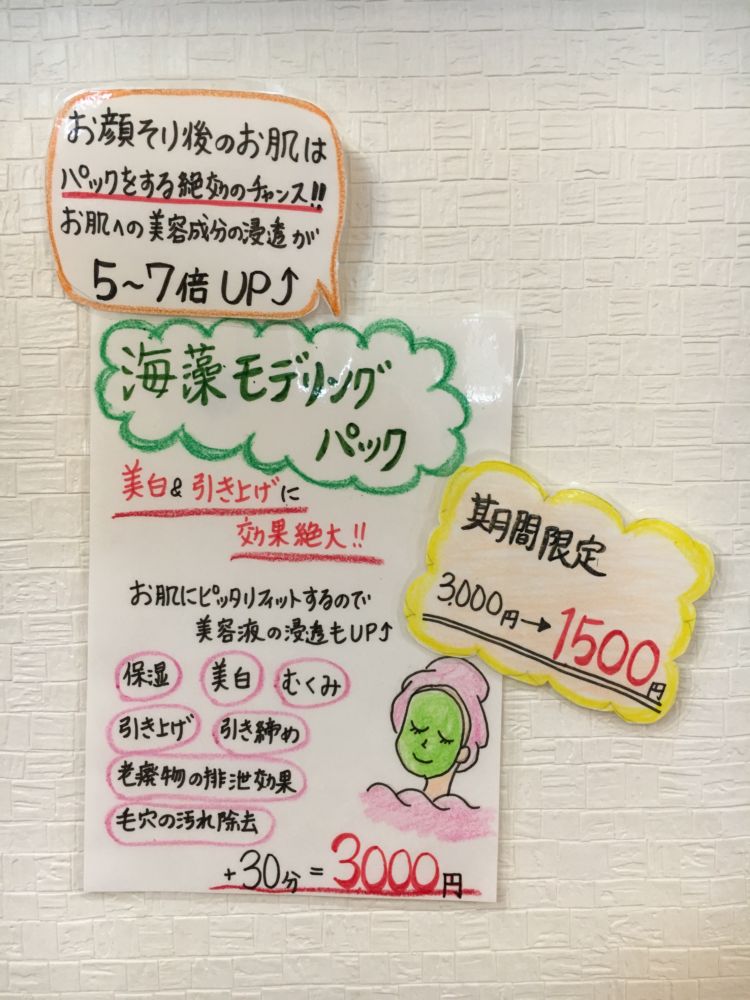 お顔そり後のお肌は
パックをする絶効のチャンス!!
お肌への美容成分の浸透が
5~7倍UP↑
海藻モデリング
パック
美白&引き上げに
効果絶大!!
お肌にピッタリフィットするので
美容液の浸透もUP↑
保湿 美白 むくみ
引き上げ 引き締め
老廃物の排泄効果
毛穴の汚れ除去
+30分=3000円
期間限定
3,000円→1500円